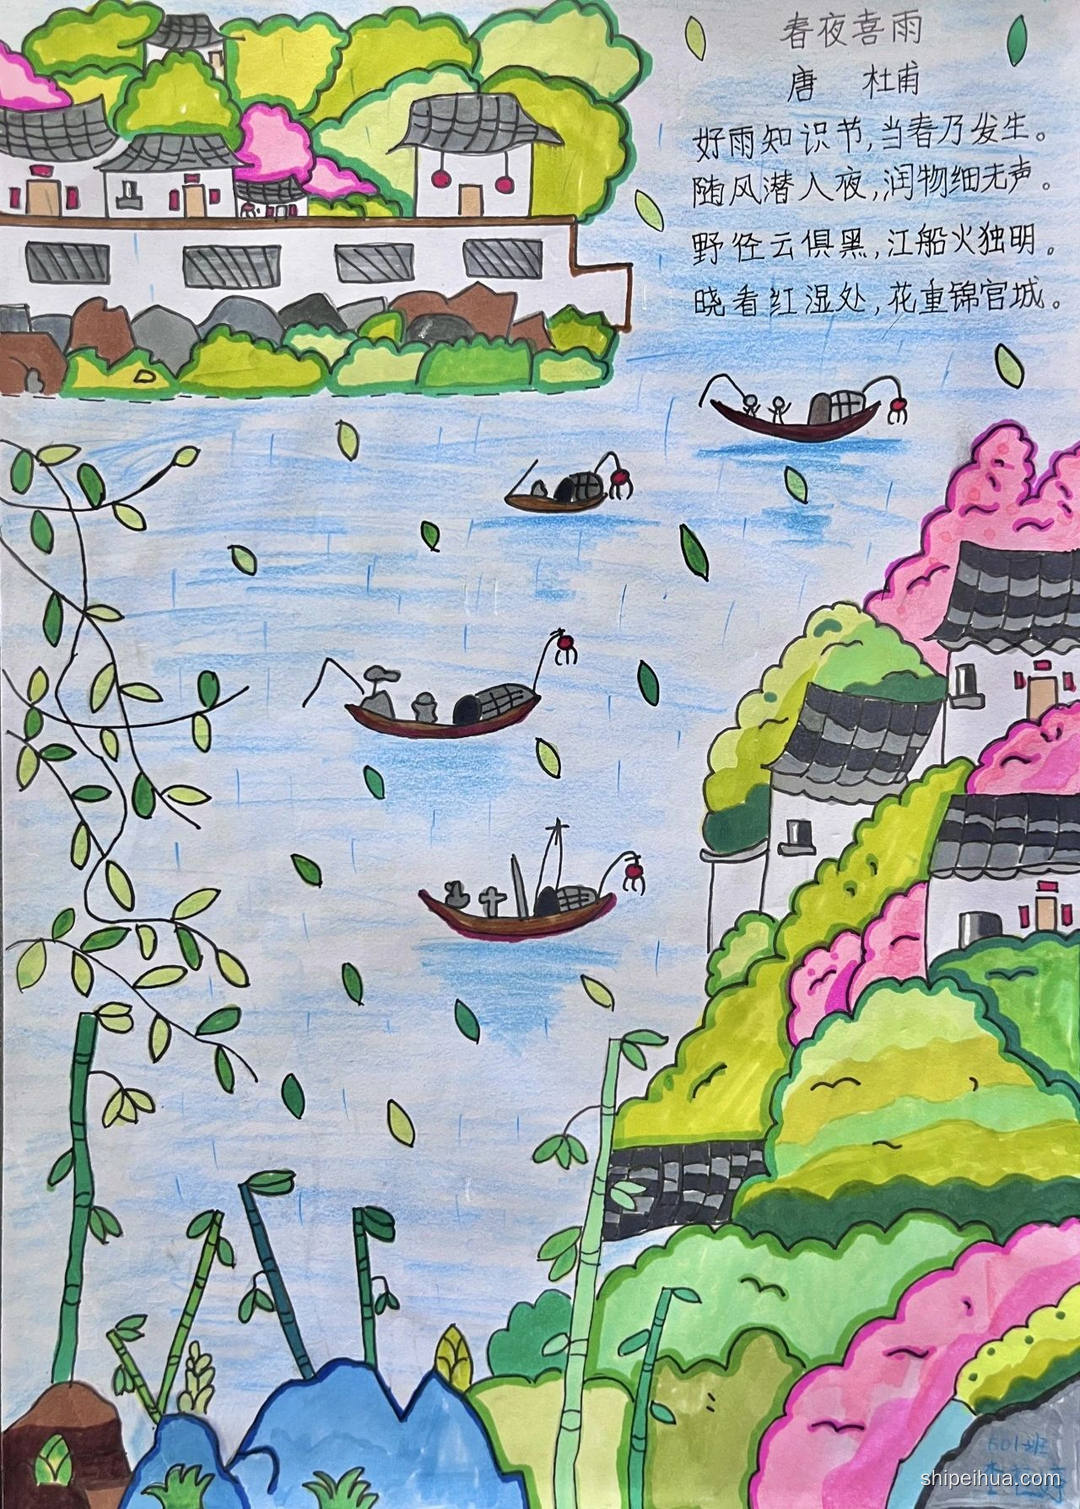 春夜喜雨
唐 杜甫
好雨知识节,当春乃发生。
随风潜入夜,润物细无声。
野径云俱黑,江船火独明。
晓看红湿处,花重锦官城。
601班
shipeihua.com